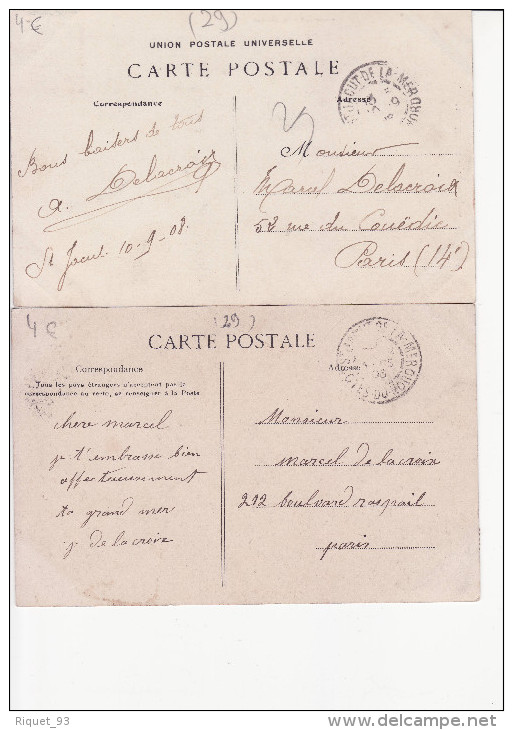 4 €
(29)
UNION POSTALE UNIVERSELLE
CARTE POSTALE
Correspondance
Adresse
Bons baisers de tous
A. Delacroix
St Jacut 10-9-08.
Monsieur
Marcel Delacroix
52 rue du Couëdic
Paris (14e)
ST JACUT-DE-LA-MER
4 €
(29)
CARTE POSTALE
Correspondance
Adresse
Tous les pays étrangers n'acceptent pas la
correspondance au verso, se renseigner à la Poste
chere marcel
je t'embrasse bien
affectueusement
ta grand mer
j de lacroix
ST JACUT-DE-LA-MER
COTES-DU-NORD
Monsieur
marcel de lacroix
212 boulvard raspail
paris
Riquet_93
www.delcampe.net